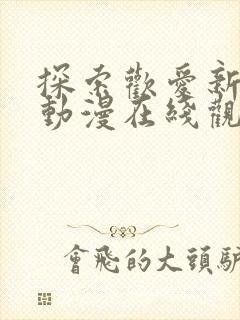 探索歡愛新
動漫在綫觀
會飛的大頭驢